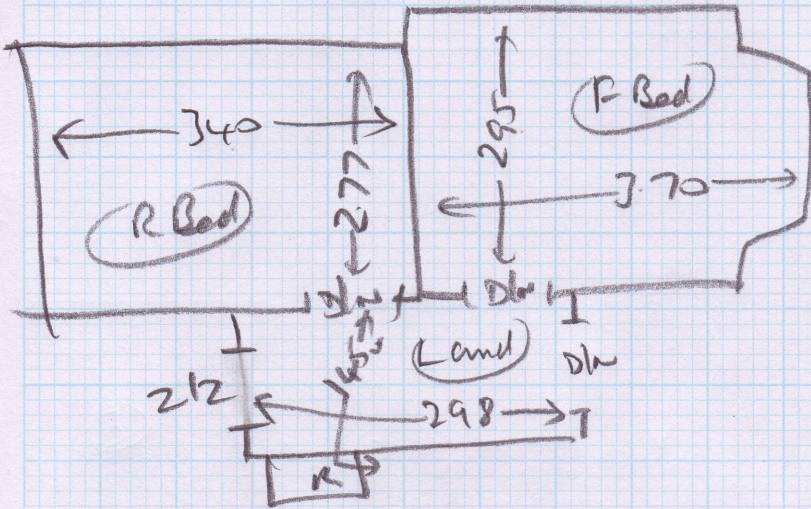 340
R Bed
2.77
295
F Bed
3.70
D/w
D/w
Land
D/w
212
298
R